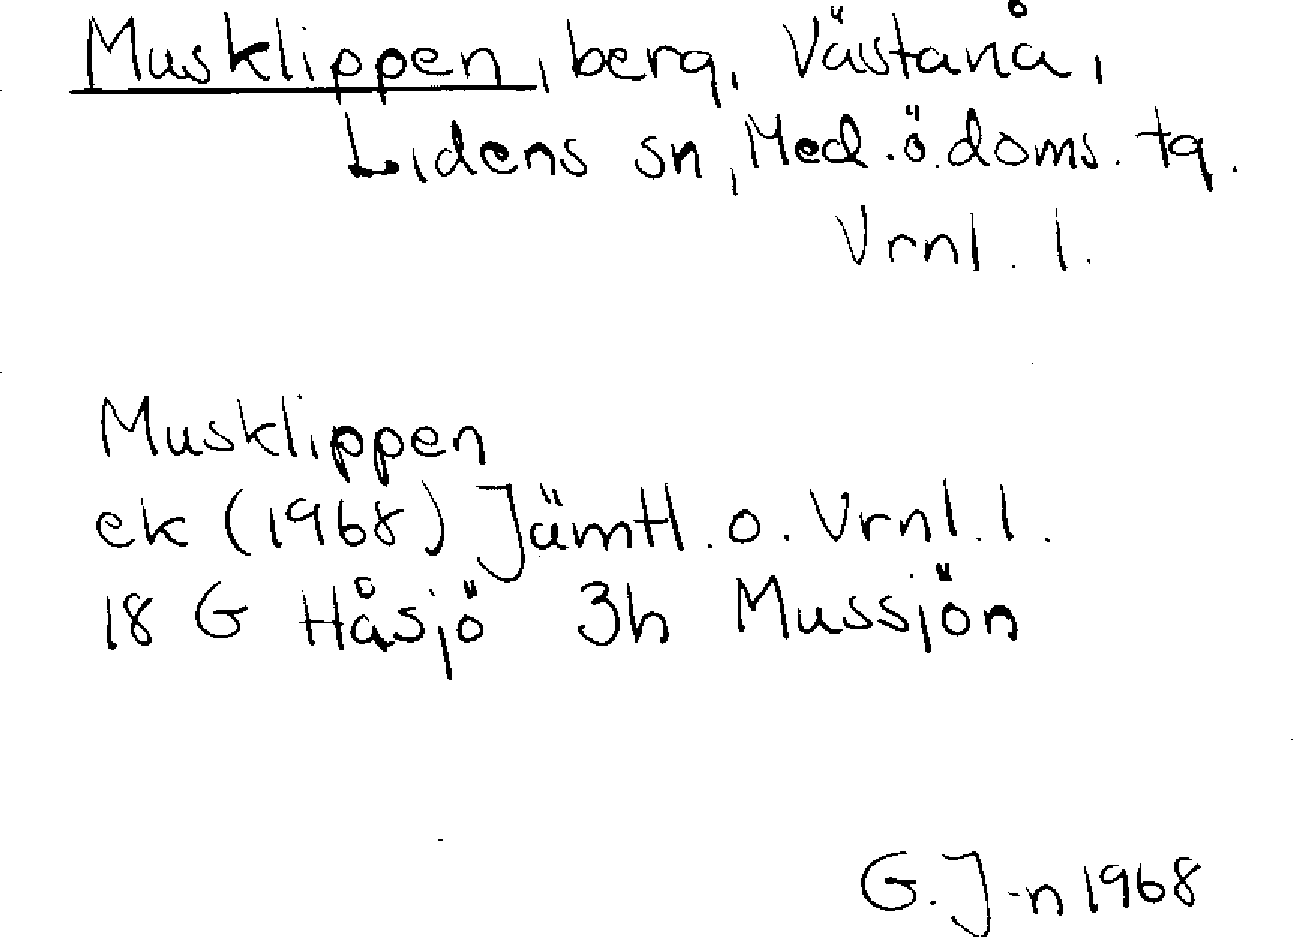 Musklippen, berg, Västanå,
Lidens sn, Med. ö. doms. tg.
Vrnl. l.
Musklippen
ek (1968) Jämtl. o. Vrnl. l.
18 G Håsjö 3h Mussjön
G. J-n 1968